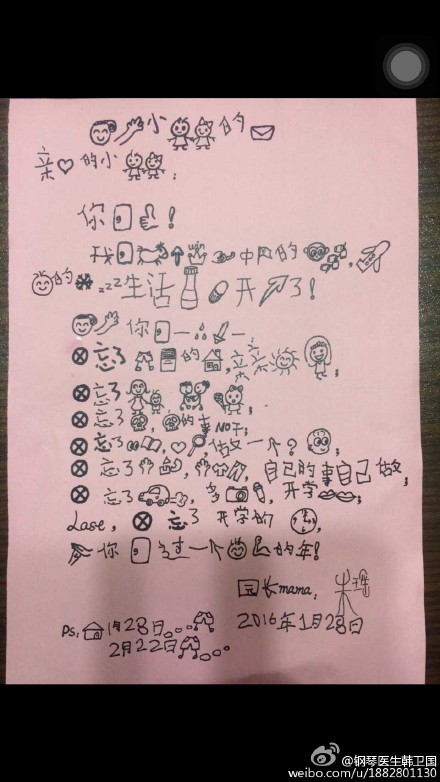 小 的
亲 的小 :
你 !
我 win 中 的 ,
的 zzz 生活 开 了!
你 一 一
忘了 的 , 亲亲 ;
忘了 , ;
忘了 , 的事NO干;
忘了 , 做一个? ;
忘了 , 自己的事自己做;
忘了 , 多 , 开学 ;
Lase, 忘了 开学的 ,
你 过一个 的年!
园长mama:
2016年1月28日
Ps: 1月28日...
2月22日
@钢琴医生韩卫国
weibo.com/u/1882801130